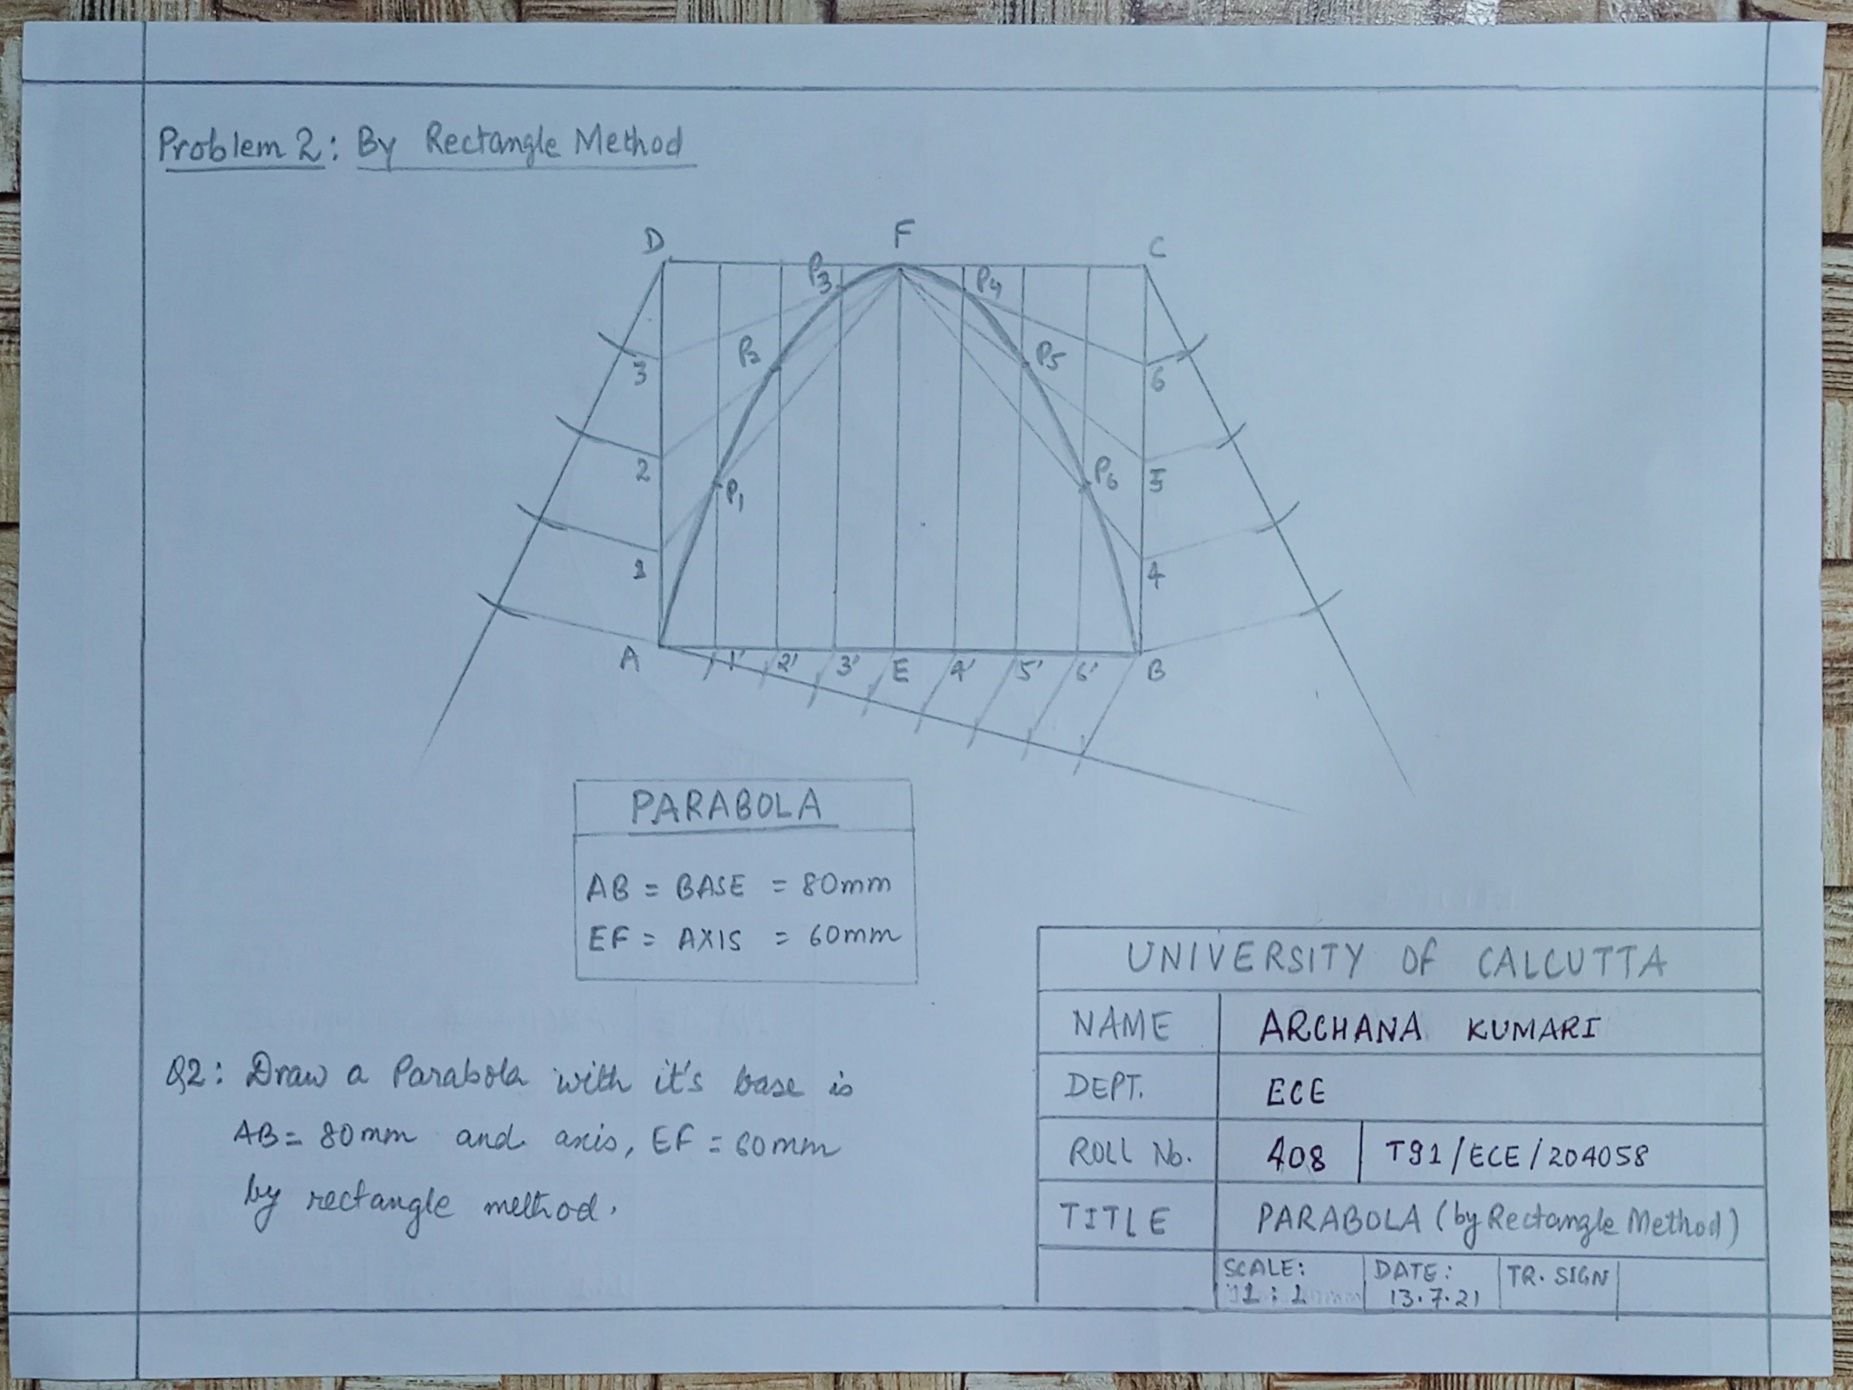 Problem 2: By Rectangle Method
D F C
P3 P4
P2 P5
3 6
2 P1 P6 5
1 4
A 1' 2' 3' E 4' 5' 6' B
PARABOLA
AB = BASE = 80mm
EF = AXIS = 60mm
Q2: Draw a Parabola with it's base is
AB = 80mm and axis, EF = 60mm
by rectangle method.
UNIVERSITY Of CALCUTTA
NAME ARCHANA KUMARI
DEPT. ECE
ROLL No. 408 T91/ECE/204058
TITLE PARABOLA (by Rectangle Method)
SCALE: DATE: TR. SIGN
1:1 13.7.21